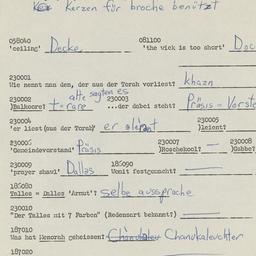 Kerzen für broche benützt
058040 081100
'ceiling' Decke 'the wick is too short' Doc
230001
Wie nennt man den, der aus der Torah vorliest? khazn
alle sagten es
230002 230003
[Balkoore? t-rare ...der dabei steht? Präsis - Vorste
230004 230005
'er liest (aus der Torah)' er [leient?
230006 230007 230008
'Gemeindevorstand' Präsis [Roschekool? — [Gabbe?
230009 185090
'prayer shawl' Dallas Womit festgemacht? —
185080
Talles = Dalles 'Armut'? selbe aussprache
230010
"Der Talles mit 7 Farben" (Redensart bekannt?) —
187010
Was hat Menorah geheissen? Chanukaleuchter
187020